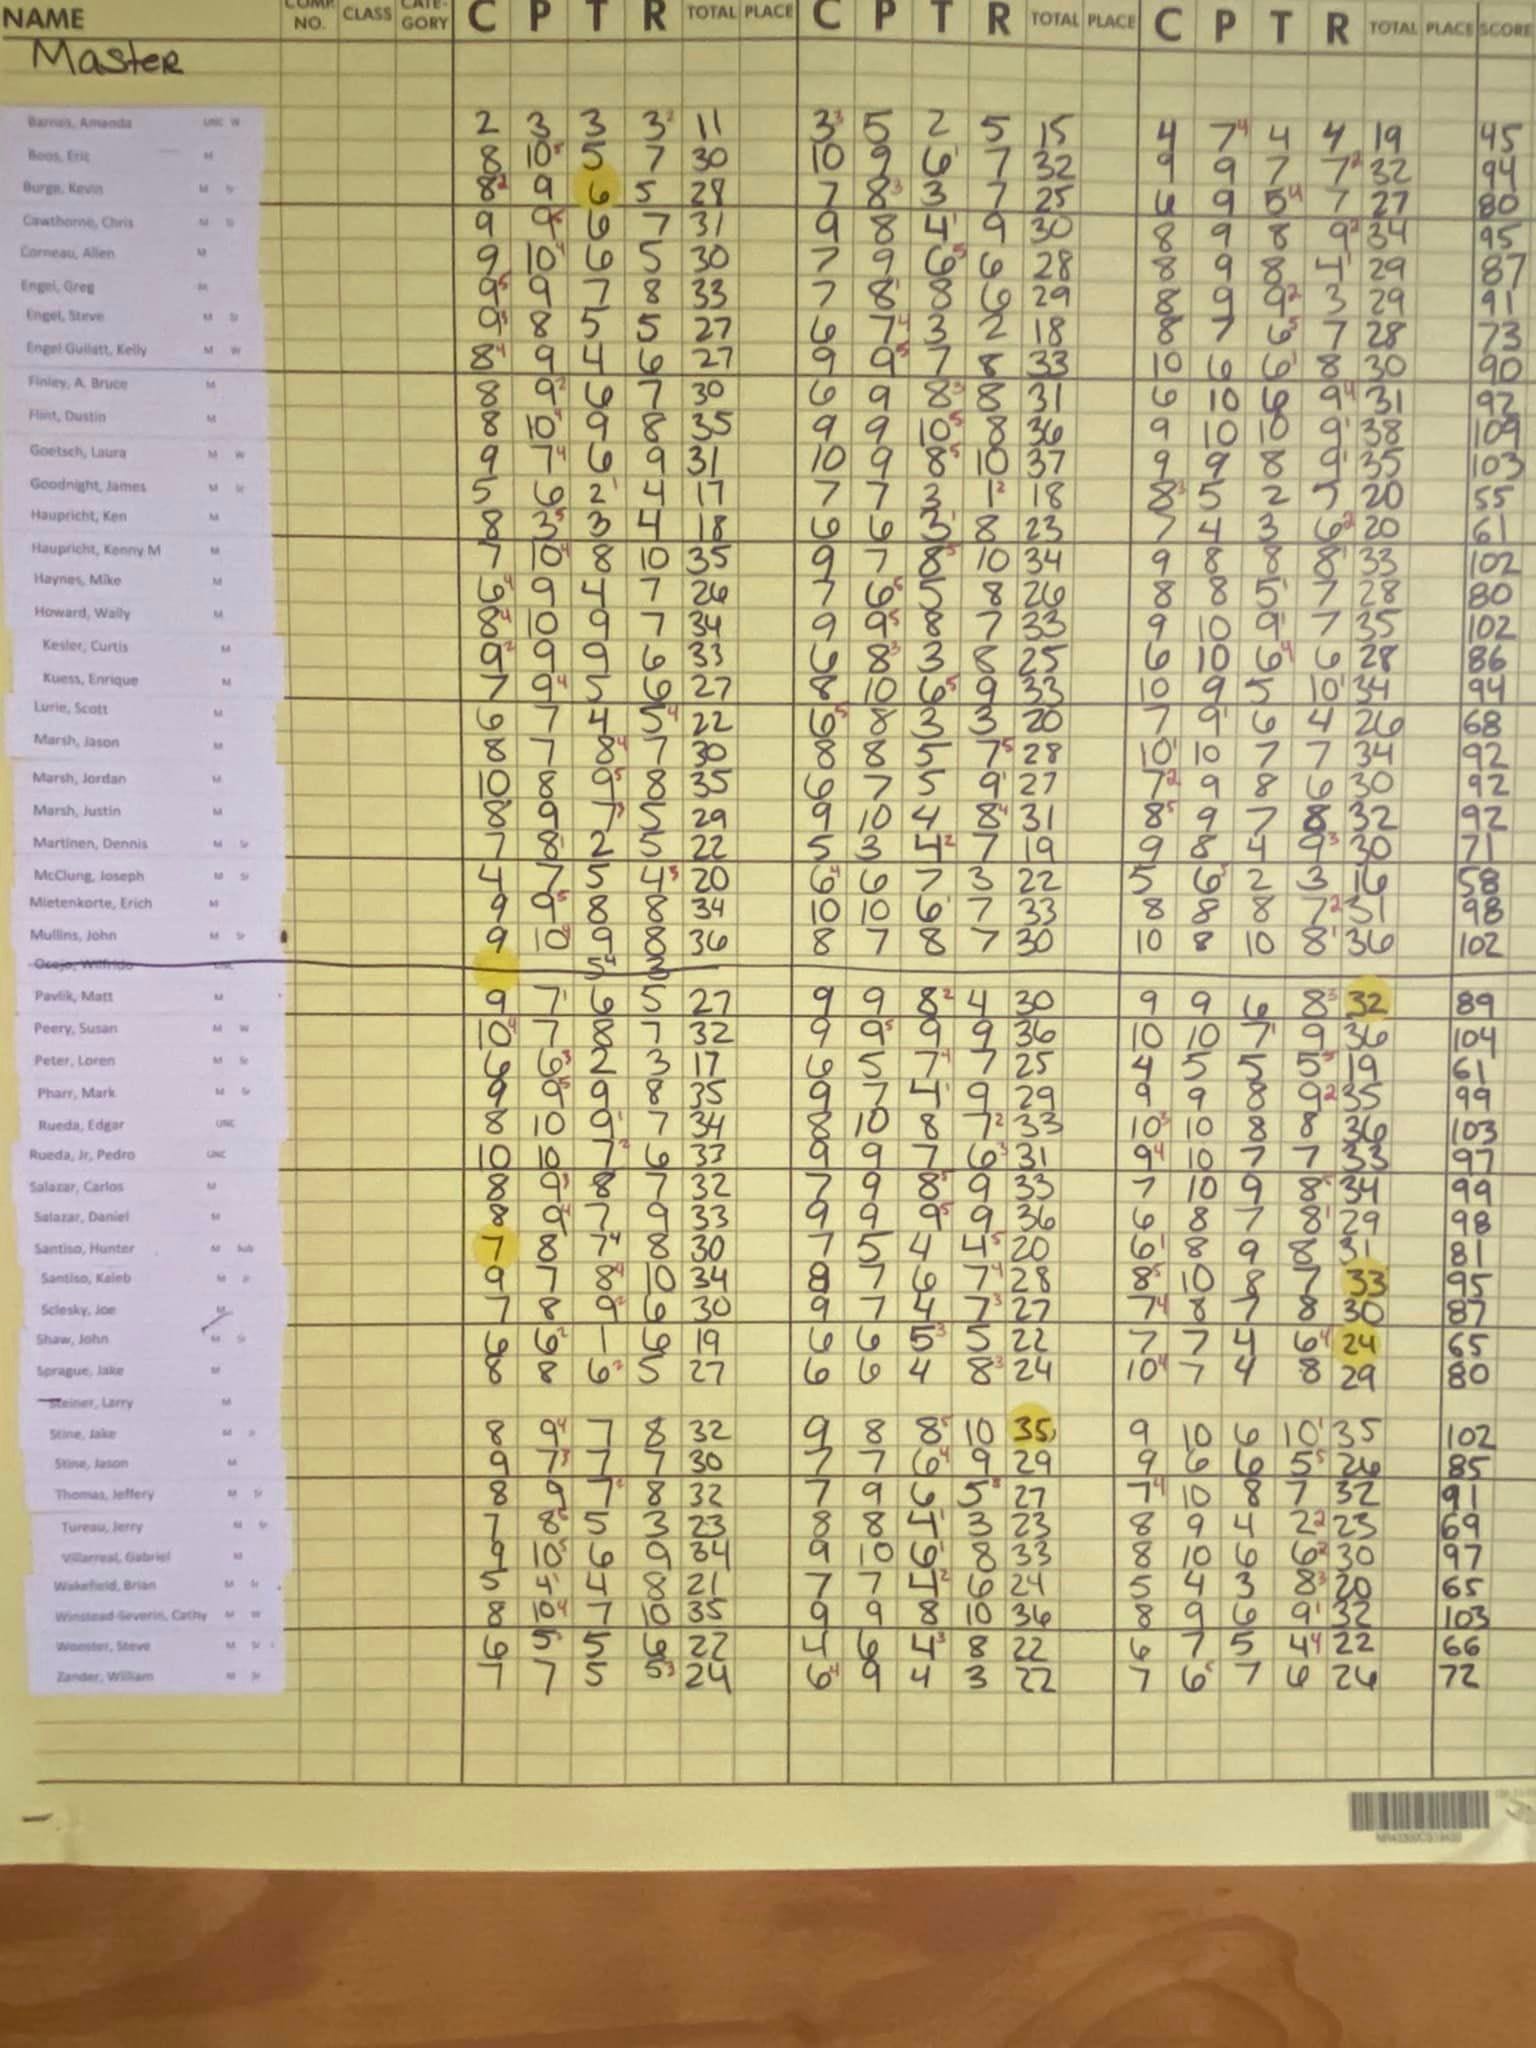 NAME COMP. NO. CLASS CATE- GORY C P T R TOTAL PLACE C P T R TOTAL PLACE C P T R TOTAL PLACE SCORE
Master
Barnas, Amanda UNC W 2 3 3 3² 11 3³ 5 2 5 15 4 7⁴ 4 4 19 45
Boos, Eric M 8 10⁵ 5 7 30 10 9 6¹ 7 32 9 9 7 7² 32 94
Burge, Kevin M Sr 8² 9 6 5 28 7 8³ 3 7 25 6 9 5⁴ 7 27 80
Cawthorne, Chris M Sr 9 9⁵ 6 7 31 9 8 4¹ 9 30 8 9 8 9² 34 95
Corneau, Allen M 9 10⁴ 6 5 30 7 9 6⁵ 6 28 8 9 8 4¹ 29 87
Engel, Greg M 9⁵ 9 7 8 33 7 8¹ 8 6 29 8 9 9² 3 29 91
Engel, Steve M Sr 9³ 8 5 5 27 6 7⁴ 3 2 18 8 7 6⁵ 7 28 73
Engel Gullatt, Kelly M W 8⁴ 9 4 6 27 9 9⁵ 7 8 33 10 6 6¹ 8 30 90
Finley, A. Bruce M 8 9² 6 7 30 6 9 8³ 8 31 6 10 6 9⁴ 31 92
Flint, Dustin M 8 10⁴ 9 8 35 9 9 10⁵ 8 36 9 10 10 9¹ 38 109
Goetsch, Laura M W 9 7⁴ 6 9 31 10 9 8⁵ 10 37 9 9 8 9¹ 35 103
Goodnight, James M Sr 5 6 2¹ 4 17 7 7 3 1² 18 8³ 5 2 5 20 55
Haupricht, Ken M 8 3⁵ 3 4 18 6 6 3¹ 8 23 7 4 3 6² 20 61
Haupricht, Kenny M M 7 10⁴ 8 10 35 9 7 8⁵ 10 34 9 8 8 8¹ 33 102
Haynes, Mike M 6⁴ 9 4 7 26 7 6⁵ 5 8 26 8 8 5¹ 7 28 80
Howard, Wally M 8⁴ 10 9 7 34 9 9⁵ 8 7 33 9 10 9¹ 7 35 102
Kesler, Curtis M 9² 9 9 6 33 6 8³ 3 8 25 6 10 6⁴ 6 28 86
Kuess, Enrique M 7 9⁴ 5 6 27 8 10 6⁵ 9 33 10 9 5 10¹ 34 94
Lurie, Scott M 6 7 4 5⁴ 22 6⁵ 8 3 3 20 7 9¹ 6 4 26 68
Marsh, Jason M 8 7 8⁴ 7 30 8 8 5 7⁵ 28 10¹ 10 7 7 34 92
Marsh, Jordan M 10 8 9⁵ 8 35 6 7 5 9¹ 27 7² 9 8 6 30 92
Marsh, Justin M 8 9 7³ 5 29 9 10 4 8⁴ 31 8⁵ 9 7 8 32 92
Martinen, Dennis M Sr 7 8¹ 2 5 22 5 3 4² 7 19 9 8 4 9³ 30 71
McClung, Joseph M Sr 4 7 5 4³ 20 6⁴ 6 7 3 22 5 6⁵ 2 3 16 58
Mietenkorte, Erich M 9 9⁵ 8 8 34 10 10 6¹ 7 33 8 8 8 7² 31 98
Mullins, John M Sr 9 10⁴ 9 8 36 8 7 8 7 30 10 8 10 8¹ 36 102
Ocejo, Wilfrido UNC 5⁴ 3
Pavlik, Matt M 9 7¹ 6 5 27 9 9 8² 4 30 9 9 6 8³ 32 89
Peery, Susan M W 10⁴ 7 8 7 32 9 9⁵ 9 9 36 10 10 7¹ 9 36 104
Peter, Loren M Sr 6 6³ 2 3 17 6 5 7⁴ 7 25 4 5 5 5⁵ 19 61
Pharr, Mark M Sr 9 9⁵ 9 8 35 9 7 4¹ 9 29 9 9 8 9² 35 99
Rueda, Edgar UNC 8 10 9¹ 7 34 8 10 8 7² 33 10³ 10 8 8 36 103
Rueda, Jr, Pedro UNC 10 10 7² 6 33 9 9 7 6³ 31 9⁴ 10 7 7 33 97
Salazar, Carlos M 8 9³ 8 7 32 7 9 8⁵ 9 33 7 10 9 8⁵ 34 99
Salazar, Daniel M 8 9⁴ 7 9 33 9 9 9⁵ 9 36 6 8 7 8¹ 29 98
Santiso, Hunter M Sub 7 8 7⁴ 8 30 7 5 4 4⁵ 20 6¹ 8 9 8 31 81
Santiso, Kaleb M Jr 9 7 8⁴ 10 34 8 7 6 7⁴ 28 8⁵ 10 8 7 33 95
Sclesky, Joe M 7 8 9² 6 30 9 7 4 7³ 27 7⁴ 8 7 8 30 87
Shaw, John M Sr 6 6² 1 6 19 6 6 5³ 5 22 7 7 4 6⁴ 24 65
Sprague, Jake M 8 8 6² 5 27 6 6 4 8³ 24 10⁴ 7 4 8 29 80
Steiner, Larry M
Stine, Jake M Jr 8 9⁴ 7 8 32 9 8 8⁵ 10 35 9 10 6 10¹ 35 102
Stine, Jason M 9 7³ 7 7 30 7 7 6⁴ 9 29 9 6 6 5⁵ 26 85
Thomas, Jeffery M Sr 8 9 7² 8 32 7 9 6 5³ 27 7⁴ 10 8 7 32 91
Tureau, Jerry M Sr 7 8⁵ 5 3 23 8 8 4¹ 3 23 8 9 4 2² 23 69
Villarreal, Gabriel M 9 10⁵ 6 9 34 9 10 6¹ 8 33 8 10 6 6² 30 97
Wakefield, Brian M Sr 5 4¹ 4 8 21 7 7 4² 6 24 5 4 3 8³ 20 65
Winstead-Severin, Cathy M W 8 10⁴ 7 10 35 9 9 8 10 36 8 9 6 9¹ 32 103
Wooster, Steve M Sr 6 5⁵ 5 6 22 4 6 4³ 8 22 6 7 5 4⁴ 22 66
Zander, William M Sr 7 7 5 5³ 24 6⁴ 9 4 3 22 7 6⁵ 7 6 26 72